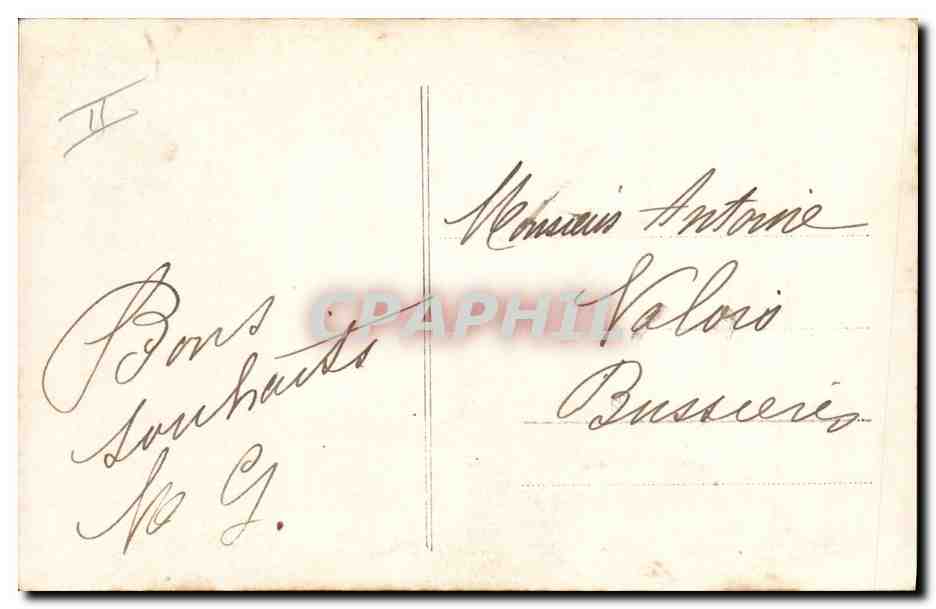 II
Bons
souhaits
M G.
Monsieur Antoine
Valois
Bussieres
CPAPHIL